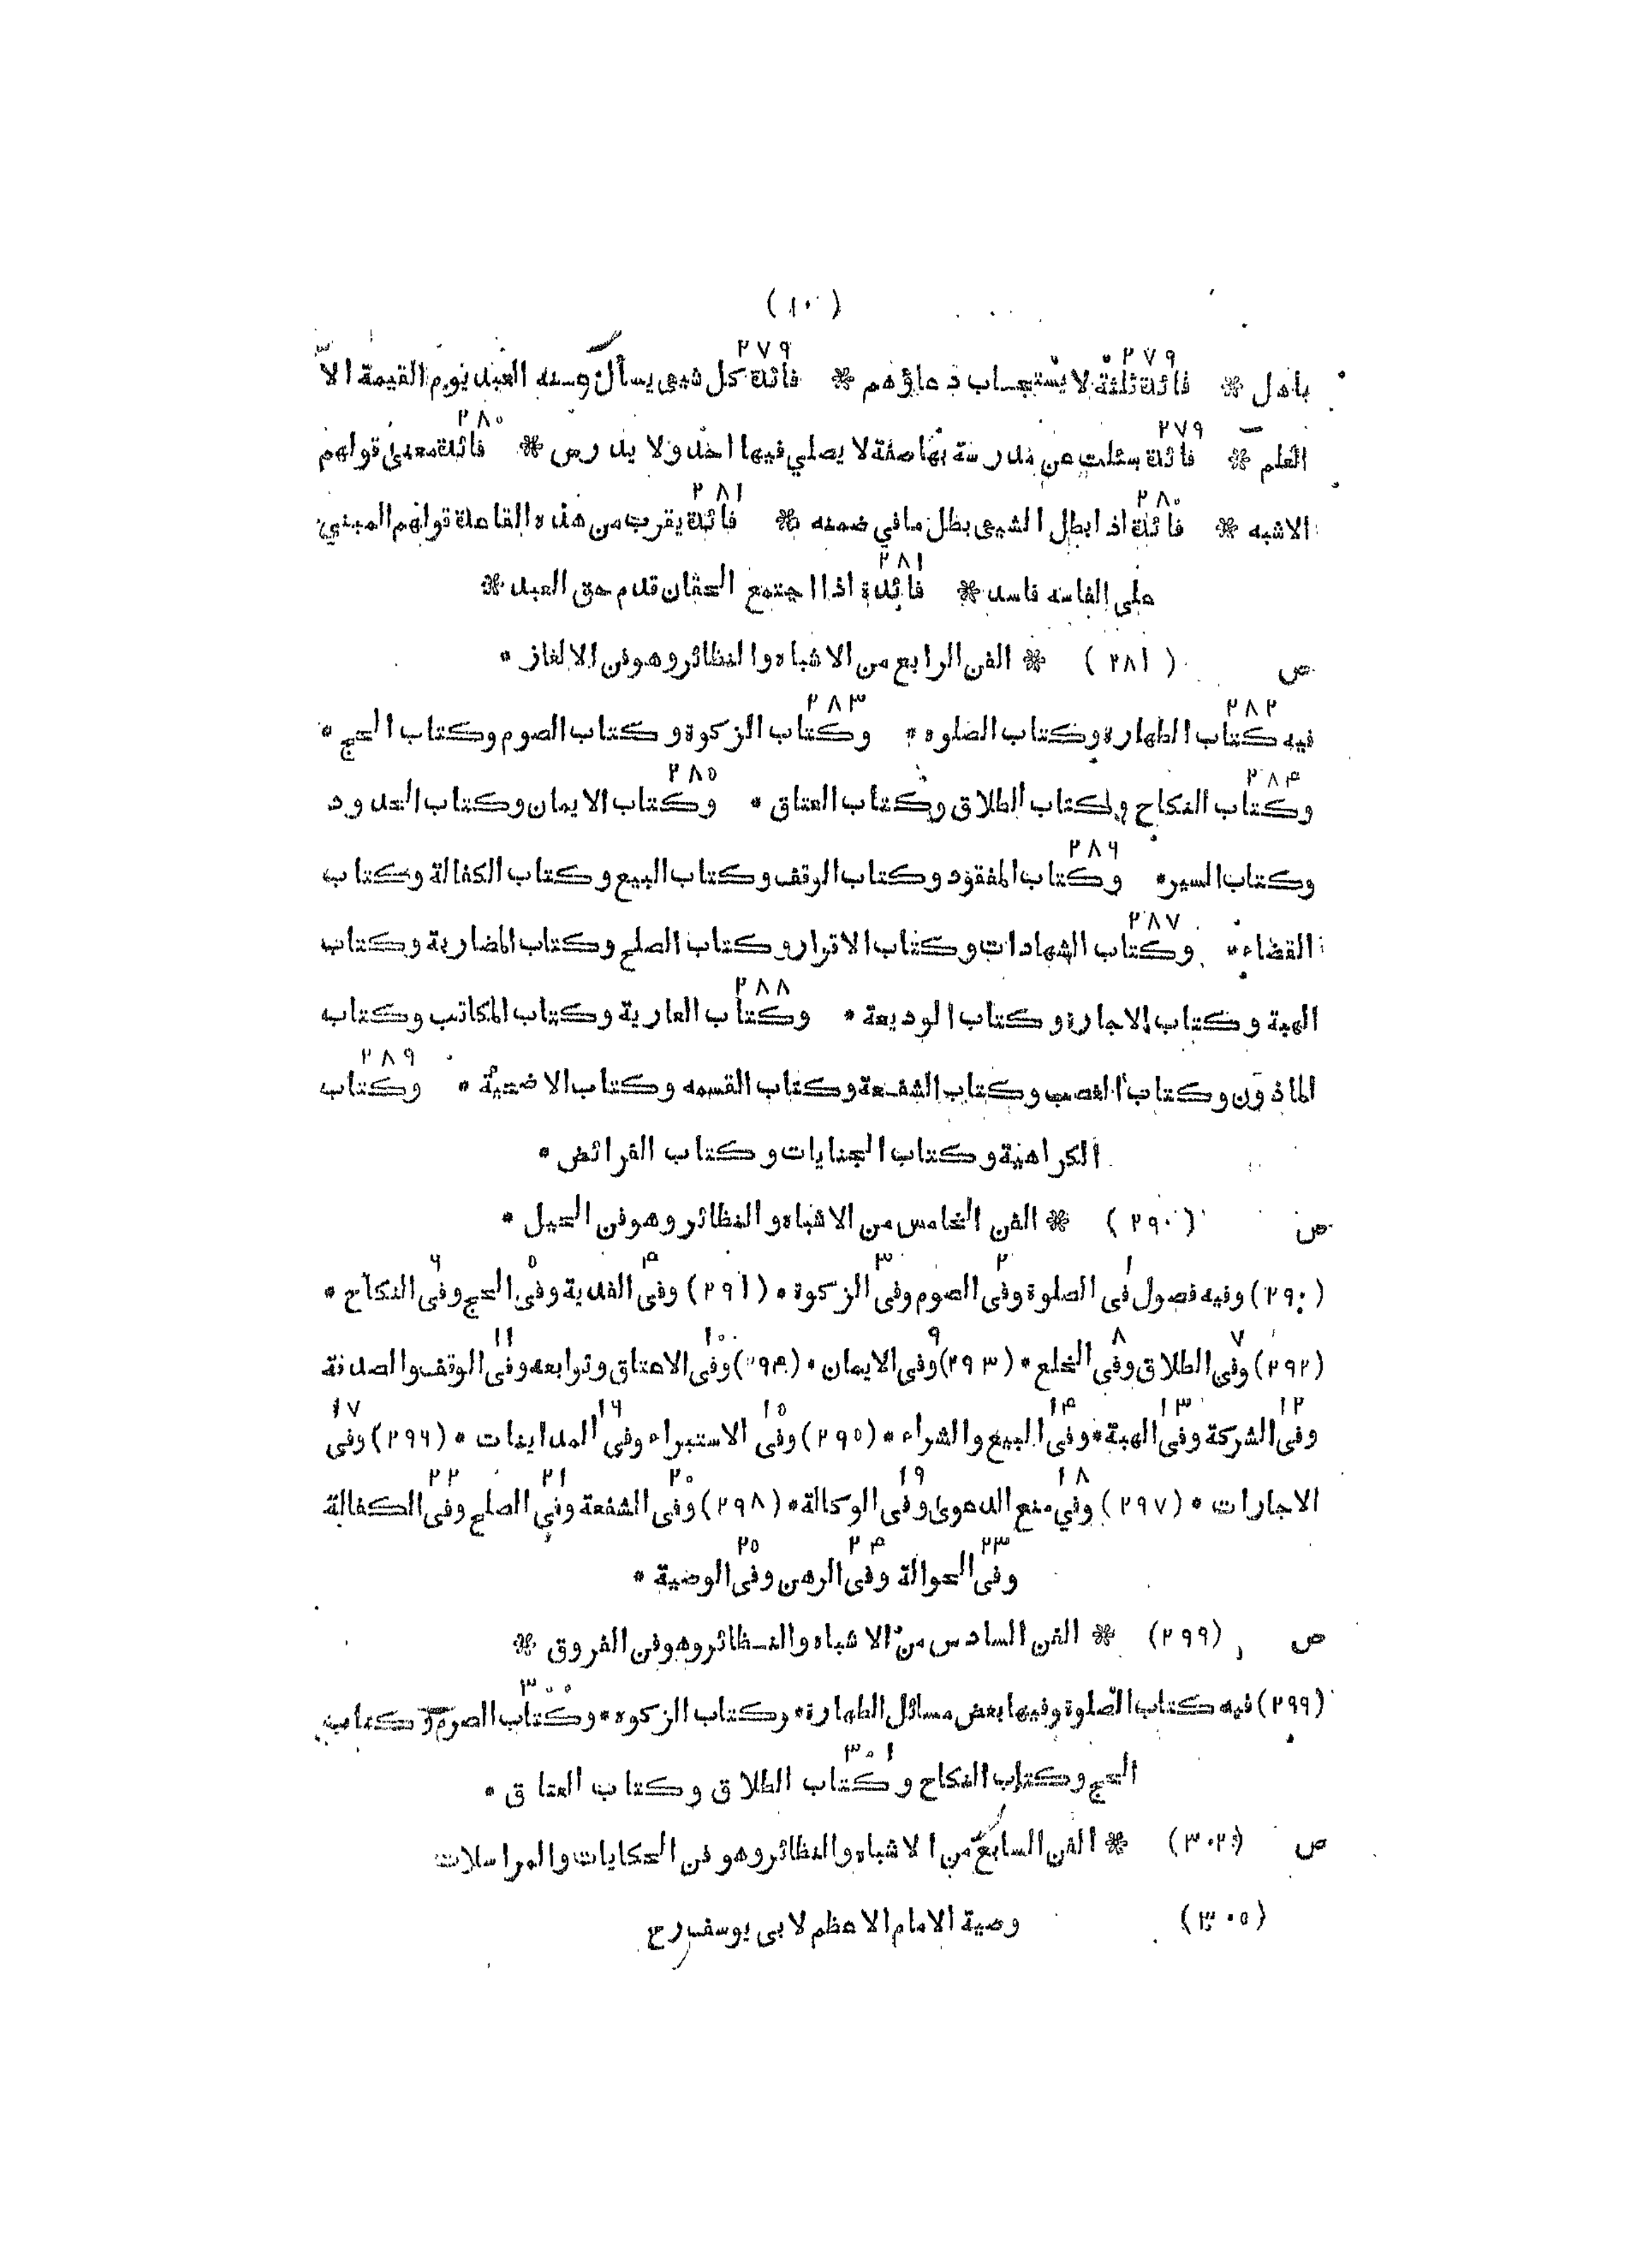 (١٠)
٢٧٩ ٢٧٩
باهل * فائدة ثلثة لا يستجاب دعاؤهم * فائدة كل شيء يسأل عنه العبد يوم القيمة الا
٢٧٩ ٢٨٠
العلم * فائدة سئلت عن مدرسة بها صفة لا يصلي فيها احد ولا يدرس * فائدة معنى قولهم
٢٨٠ ٢٨١
الاشبه * فائدة اذا بطل الشيء بطل ما في ضمنه * فائدة يقرب من هذه القاعدة قولهم المبني
٢٨١
على الفاسد فاسد * فائدة اذا اجتمع الحقان قدم حق العبد *
ص (٢٨١) * الفن الرابع من الاشباه والنظائر وهو فن الالغاز *
٢٨٢ ٢٨٣
فيه كتاب الطهارة وكتاب الصلوه * وكتاب الزكوة وكتاب الصوم وكتاب الحج *
٢٨٤ ٢٨٥
وكتاب النكاح وكتاب الطلاق وكتاب العتاق * وكتاب الايمان وكتاب الحدود
٢٨٦
وكتاب السير * وكتاب المفقود وكتاب الوقف وكتاب البيع وكتاب الكفالة وكتاب
٢٨٧
القضاء * وكتاب الشهادات وكتاب الاقرار وكتاب الصلح وكتاب المضاربة وكتاب
٢٨٨
الهبة وكتاب الاجارة وكتاب الوديعة * وكتاب العارية وكتاب المكاتب وكتاب
٢٨٩
الماذون وكتاب الغصب وكتاب الشفعة وكتاب القسمه وكتاب الاضحية * وكتاب
الكراهية وكتاب الجنايات وكتاب الفرائض *
ص (٢٩٠) * الفن الخامس من الاشباه والنظائر وهو فن الحيل *
١ ٢ ٣ ٤ ٥ ٦
(٢٩٠) وفيه فصول فى الصلوة وفى الصوم وفى الزكوة * (٢٩١) وفى الفدية وفى الحج وفى النكاح *
٧ ٨ ٩ ١٠ ١١
(٢٩٢) وفى الطلاق وفى الخلع * (٢٩٣) وفى الايمان * (٢٩٤) وفى الاعتاق وتوابعه وفى الوقف والصدقة
١٢ ١٣ ١٤ ١٥ ١٦ ١٧
وفى الشركة وفى الهبة * وفى البيع والشراء * (٢٩٥) وفى الاستبراء وفى المداينات * (٢٩٦) وفى
١٨ ١٩ ٢٠ ٢١ ٢٢
الاجارات * (٢٩٧) وفي منع الدعوى وفى الوكالة * (٢٩٨) وفى الشفعة وفي الصلح وفى الكفالة
٢٣ ٢٤ ٢٥
وفى الحوالة وفى الرهن وفى الوصية *
ص (٢٩٩) * الفن السادس من الاشباه والنظائر وهو فن الفروق *
٣٠٠
(٢٩٩) فيه كتاب الصلوة وفيها بعض مسائل الطهارة * وكتاب الزكوه * وكتاب الصوم وكتاب
٣٠١
الحج وكتاب النكاح وكتاب الطلاق وكتاب العتاق *
ص (٣٠٢) * الفن السابع من الاشباه والنظائر وهو فن الحكايات والمراسلات
(٣٠٥) وصية الامام الاعظم لابى يوسف رح